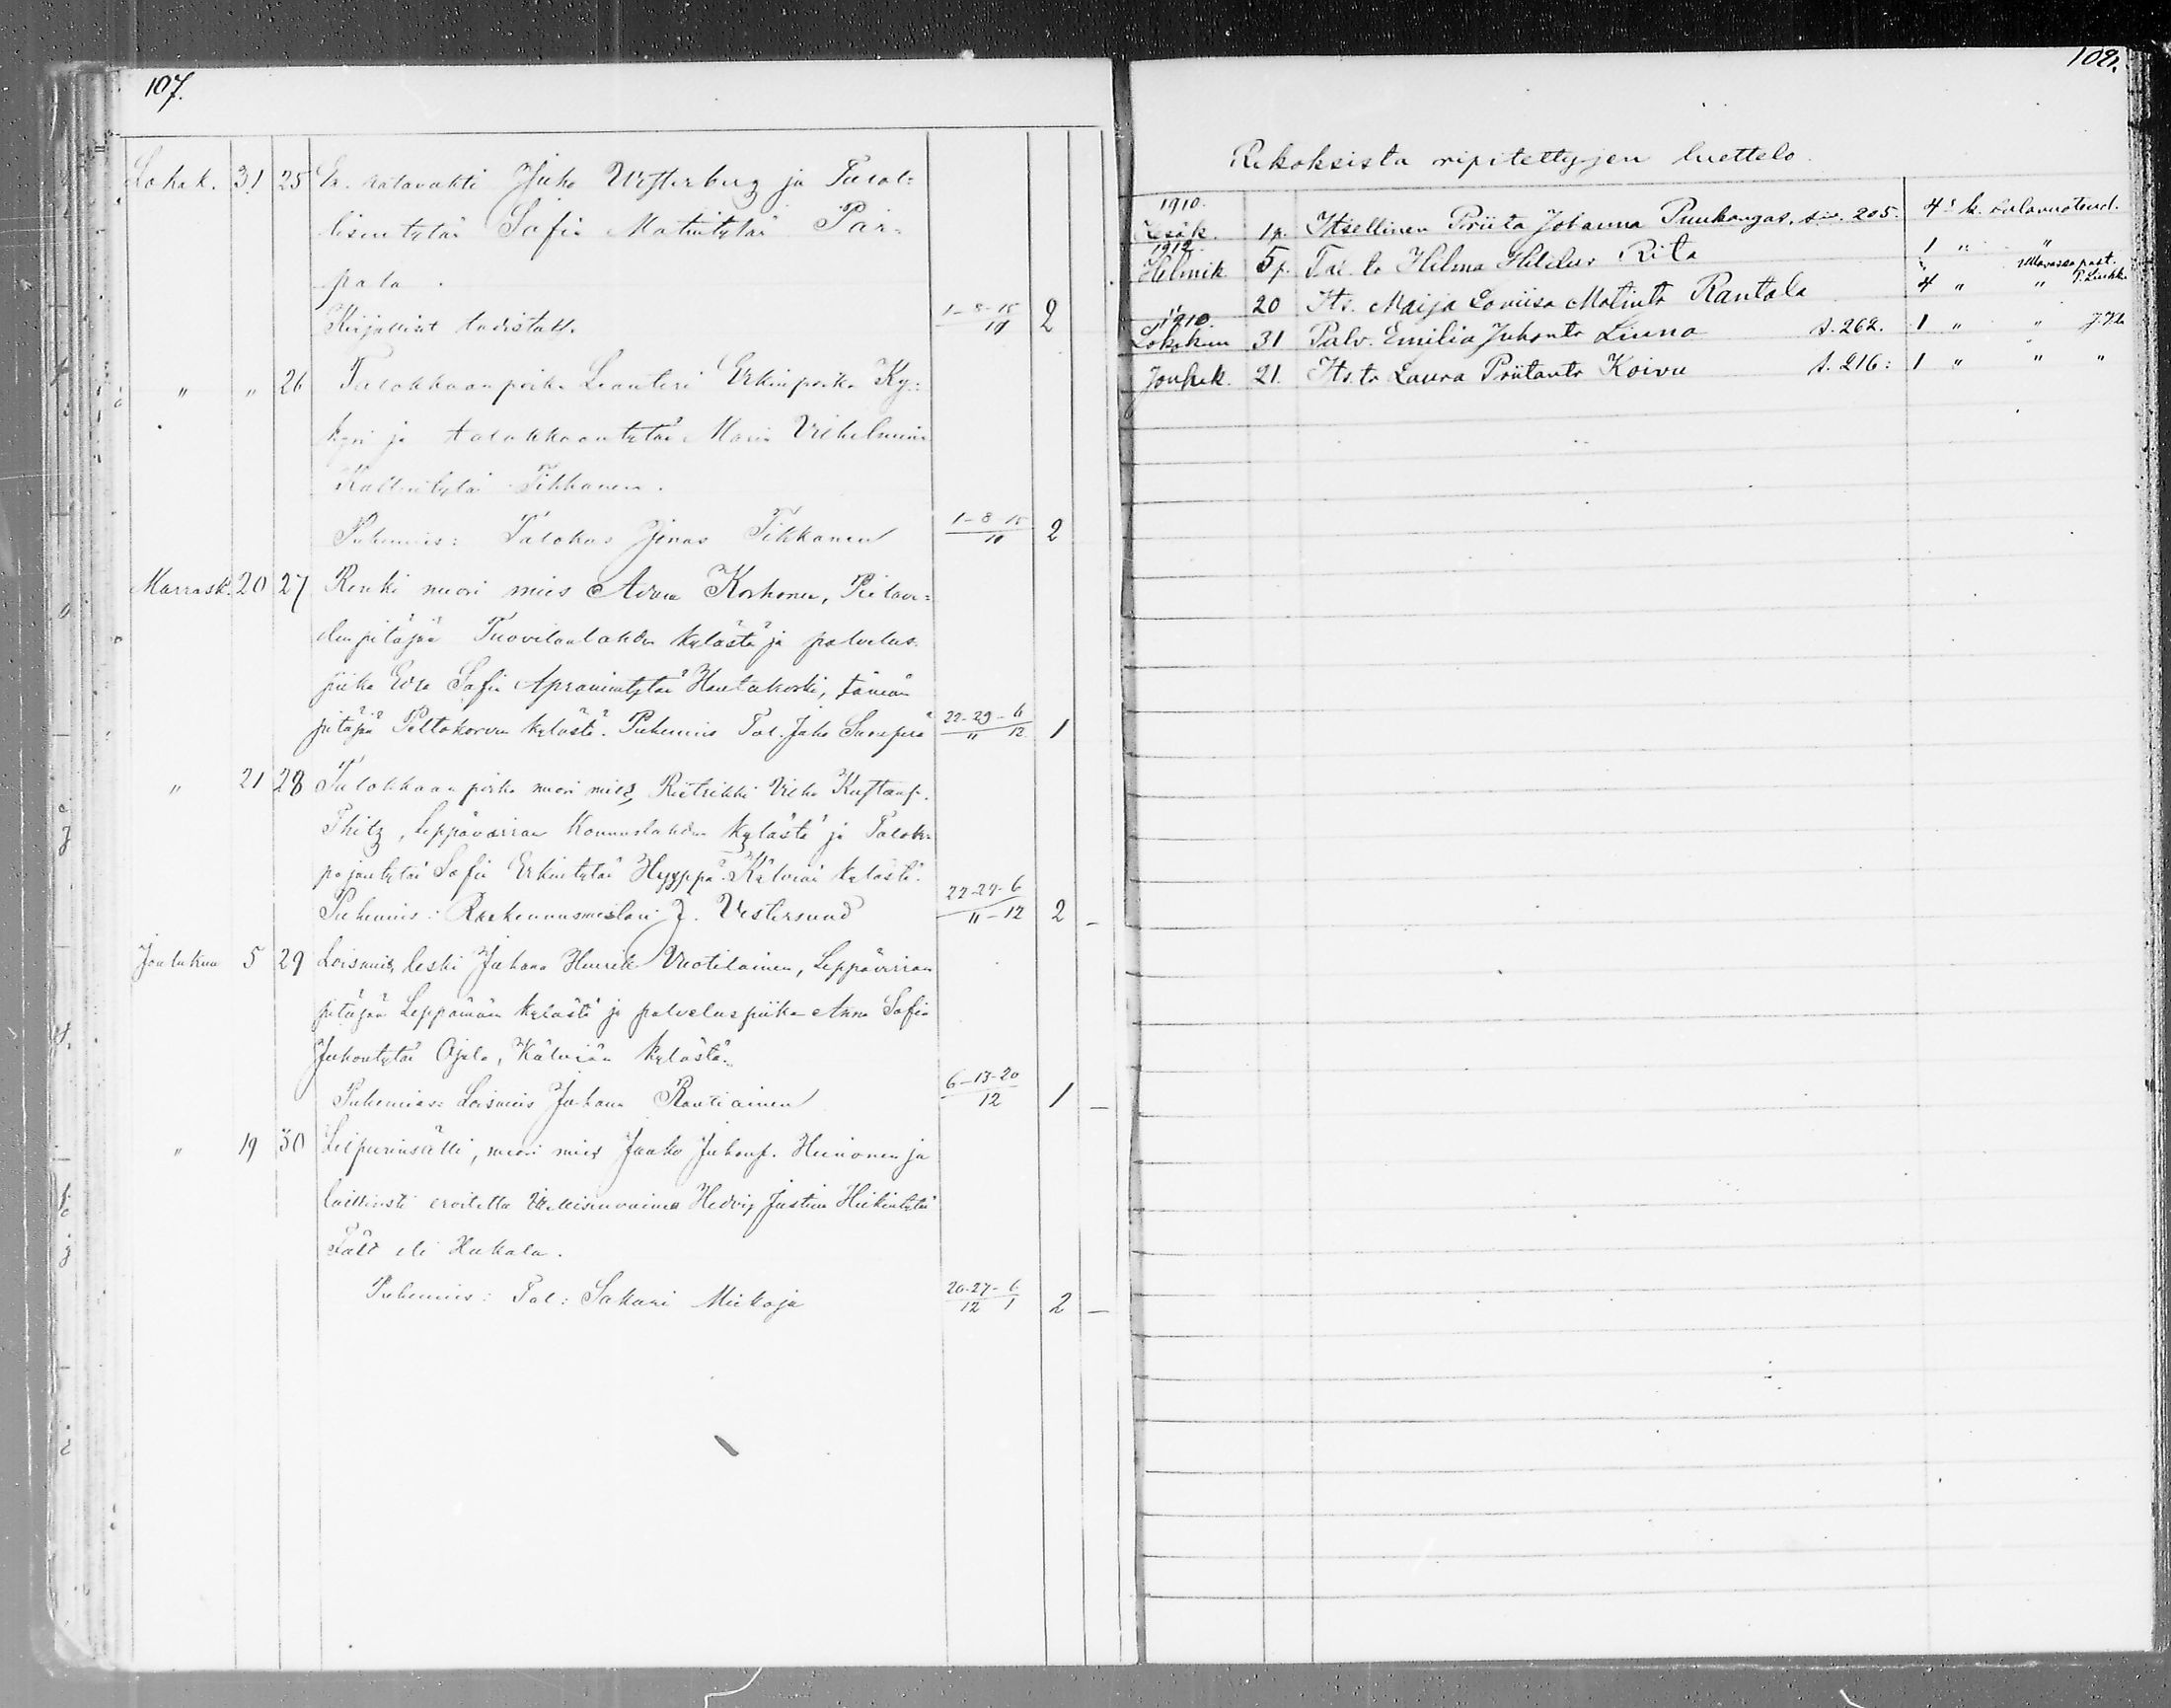 107.
Lokak. 31 25 Er. ratavahti Juho Westerberg ja Talol=
lisentytär Sofia Matintytär Pär=
pala.
Kirjalliset todistukset 1-8-15 2
" " 26 Talokkaan poika Leanteri Erkinpoika Ky=
ja talokkaantytär Maria Vilhelmiina
Tikkanen.
Puhemies: Talokas Jonas Tikkanen 1-8-15 2
Marrask. 20 27 Renki nuori mies Korhonen, Pielave=
den pitäjän Tuovilanlahden kylästä ja palvelus
piika Eeva Sofia Apramintytär Hautakoski, tämän
pitäjän Peltokorvan kylästä. Puhemies Tal. Juho 22-29-6 / 11 12 1
" 21 28 Talokkaan poika nuori mies, Vilho Kustaap.
Thitz, Leppävirran Konnuslahden kylästä ja Talok.
pojantytär Sofia Erkintytär Hyyppä Kälviän kylästä.
Puhemies: Rakennusmestari J. Vestersund 22-29-6 / 11-12 2 -
Joulukuu 5 29 Loismies, leski Juhana Henrik Vuotilainen, Leppävirran
pitäjän Leppämäen kylästä ja palveluspiika Anna Sofia
Juhontytär Ojala, Kälviän kylästä.
Puhemies: Loismies Juhana Rautiainen 6-13-20 / 12 1 -
" 19 30 Leipurinsälli, nuori mies Jaako Juhonp. Heinonen ja
laillisesti eroitettu vaimo Hedvig Justina Heikintytär
Fält eli Hakala.
Puhemies: Tal: Sakari Miekoja 20-27-6 / 12 1 2 -
108.
Rikoksista ripitettyjen luettelo.
1910.
Kesäk. 1p. Itsellinen Priita Johanna Puukangas, siv. 205. 4s k. salavuoteud.
1912.
Helmik 5p. Tal. tr Hilma Rita 1 " "
" 20 Its. Maija Loviisa Matintr Rantala 4 " "
1910.
Lokakuu 31 Palv. Emilia Juhontr Linna s. 262. 1 " "
Jouluk. 21. Its. tr Laura Priitantr Koivu s. 216: 1 " " "